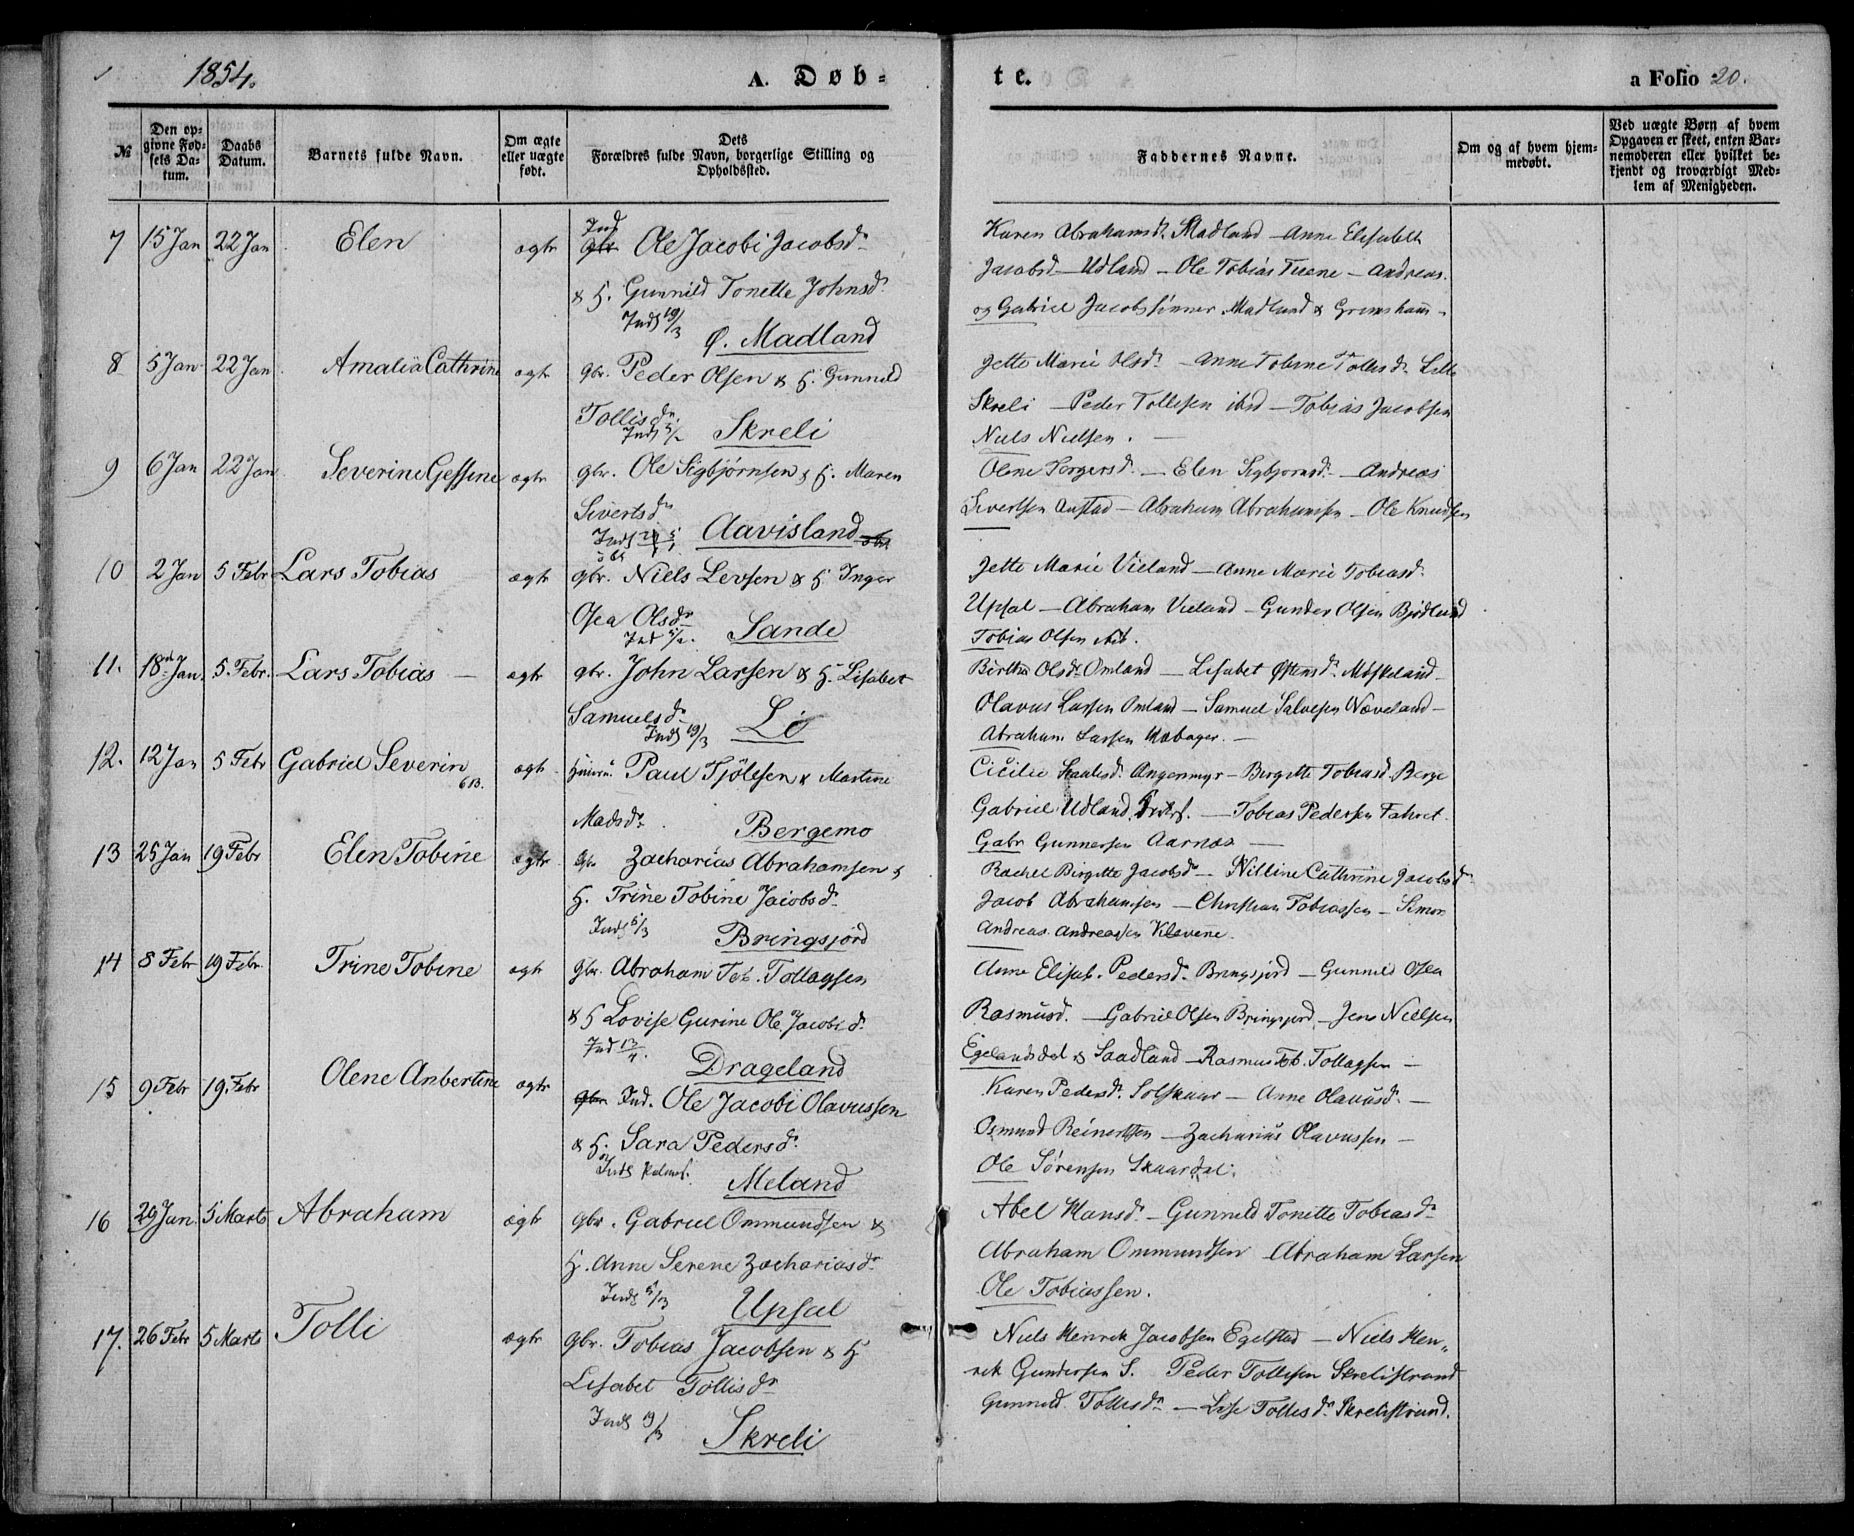 1854.
A. Døb-
te.
a Folio 20.
№
Den op-
givne Fød-
sels Da-
tum.
Daabs
Datum.
Barnets fulde Navn.
Om ægte
eller uægte
født.
Dets
Forældres fulde Navn, borgerlige Stilling og
Opholdssted.
Faddernes Navne.
Om og af hvem hjem-
medøbt.
Ved uægte Børn af hvem
Opgaven er skeet, enten Bar-
nemoderen eller hvilket be-
kjendt og troværdigt Med-
lem af Menigheden.
7 15 Jan 22 Jan Elen ægte Ind Gbr. Ole Jacobi Jacobsd.
& H. Gunnild Tonette Johnsd.
Inds 19/3 Ø. Madland
Karen Abrahamsd. Madland – Anne Elisabeth
Jacobsd – Udland – Ole Tobias Tuene – Andreas
og Gabriel Jacobssønner Madland & Grimshamn
8 5 Jan 22 Jan Amalia Cathrine ægte gbr. Peder Olsen & H. Gunnild
Tollisdr.
Inds 5/2 Skreli
Jette Marie Olsdr – Anne Tobine Tollisd. Lille
Skreli – Peder Tollisen ibid – Tobias Jacobsen
Niels Nielsen. –
9 6 Jan 22 Jan Severine Gessine ægte gbr. Ole Sigbjørnsen & H. Maren
Sivertsdr
Aavisland
Olene Torgersd. – Elen Sigbjørnsd – Andreas
Sivertsen Austad – Abraham Abrahamsen – Ole Knudsen
10 2 Jan 5 Febr Lars Tobias ægte gbr. Niels Levsen & H Inger
Osea Olsdr
Ind 5/2. Sande
Jette Marie Vieland – Anne Marie Tobiasd.
Upsal – Abraham Vieland – Gunder Olsen Bjødland
Tobias Olsen
11. 18 Jan 5. Febr. Lars Tobias – ægte gbr. John Larsen & H. Lisabet
Samuelsdr
Inds 19/3 Lio
Birthe Olsdr Omland – Lisabet Østensdr. Møskeland –
Olavus Larsen Omland – Samuel Salvesen Næveland –
Abraham Larsen –
12. 12 Jan 5 Febr Gabriel Severin 613. ægte Paul Tjølsen & Martine
Madsdr. Bergemo
Cicilie Angermyr – Bergitte Tobiasd. Berge
Gabriel Udland, – Tobias Pedersen Fahret
Gabr Gunnersen Aarnæs –
13 25 Jan 19 Febr Elen Tobine ægte Gbr Zacharias Abrahamsen &
H. Trine Tobine Jacobsdr
Inds 5/3 Bringsjord
Rachel Birgitte Jacobsd – Nilline Cathrine Jacobsdr
Jacob Abrahamsen – Christian Tobiassen – Simon
Andreas Andreassen Klevene.
14 8 Febr 19 Febr Trine Tobine ægte gbr. Abraham Tob. Tollagsen
& H Lovise Gurine Ole Jacobsdr
Ind 17/4. Drageland
Anne Elisab. Pedersdr. Bringsjord – Gunnild Osea
Rasmusd. – Gabriel Olsen Bringsjord – Jens Nielsen
Egelandsdal & Saadland – Rasmus Tob. Tollagsen –
15 9 Febr 19. Febr Olene Anbertine ægte Gbr Ind. Ole Jacobi Olavussen
& H. Sara Pedersdr.
Inds Palmes. Meland
Karen Pedersdr. Solskaar – Anne Olavusd. –
Osmund Reinertsen – Zacharias Olavussen –
Ole Sørensen Skaardal.
16 29 Jan. 5 Marts Abraham ægte gbr. Gabriel Ommundsen &
H. Anne Serene Zachariasdr
Inds 5/3 Upsal
Abel Hansd. – Gunnild Tonette Tobiasdr
Abraham Ommundsen Abraham Larsen
Ole Tobiassen.
17. 26 Febr 5 Marts Tolli ægte gbr. Tobias Jacobsen & H
Lisabet Tollisdr
Inds 19/3 Skreli
Niels Henrik Jacobsen Egelstad – Niels Hen-
rik Gundersen S. Peder Tollisen Skrelistrand
Gunnild Tollisdr – Lise Tollisdr Skrelistrand.